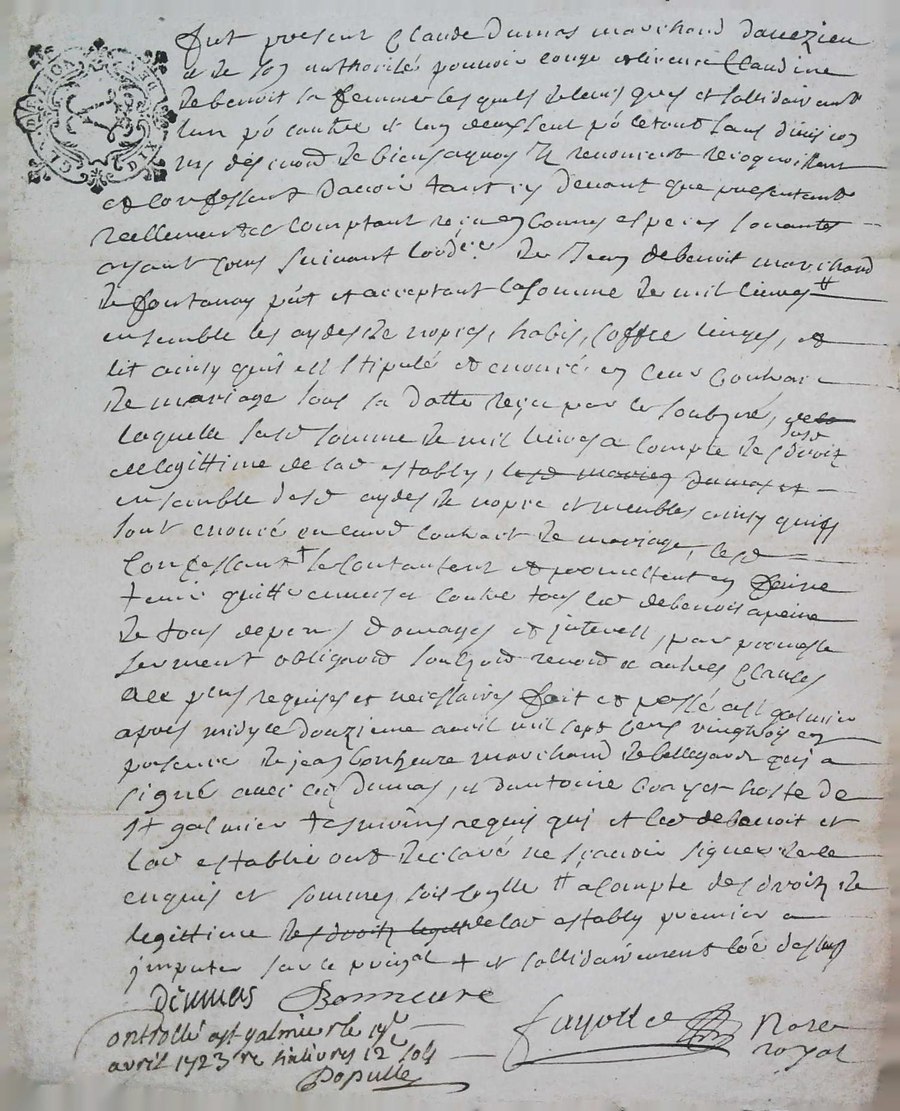 GEN DE LYON
DIX DEN
fut present Claude Dumas marchand davezieu
et de son authorité pouvoir conge et licence Claudine
debenoit sa femme lesquels de leurs grés et sollidairemt
lun pō lautre et un deux seul pō le tout sans division
ny de biens aquoy Ilz renoncent recognoissent
et confessent davoir tant cy devant que presentemt
reellement et comptant reçu en bonnes especes sonantes
ayant cours suivant lordce de Jean debenoit marchand
de fontanay pnt et acceptant la somme de mil livres #
ensemble les aydes de nopces, habis, coffre linges, et
lit ainsy quil est stipulé et enoncé en leur contrat
de mariage sous sa datte reçu par le soubzné,
laquelle susd somme de mil livres a compte des susd droitz
de legittime de lad establye, lesd mariez Dumas et
ensemble desd aydes de nopce et meubles ainsy quils
sont enoncé aud contract de mariage, lesd
confessants + se contantent et promettent en faire
tenir quitte envers et contre tous led debenoit apeine
de tous depens domages et interest, par promesse
serment obligaōn renonc et autres clauses
plus requises et necessaires fait et passé a st galmier
apres midy le douzieme avril mil sept cens vingtrois en
presence de jean bonheure marchand de bellegarde qui a
signé avec led Dumas, et dantoine hoste de
st galmier tesmoins requis qui et led debenoit et
lad establie ont declaré ne sçavoir signer de ce
enquis et sommés # a compte des droitz de
legittime des droitz legitt de lad establye premier a
jmputer sur le + et sollidairement
Dumas Bonneure
ontrollé a st galmier le
avril 1723 re livres 12 sols
Populle
fayolle Nore
royal